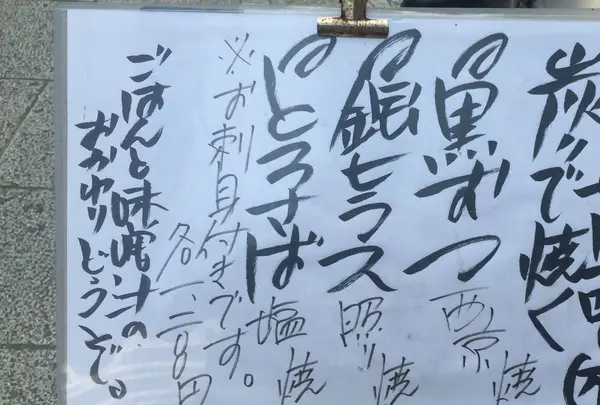 炭火で焼く
黒むつ 西京焼
銀ヒラス 照り焼
とろさば 塩焼
※お刺身付きです。
各一、二八〇円
ごはんと味噌汁の
おかわりどうぞ。